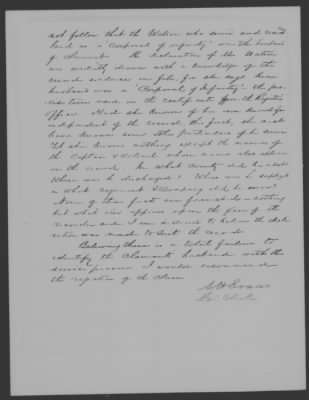 not follow that the Watson who served and
land as a "Corporal of Infantry" was the husband
of Claimant. The declarations of the Widow
are evidently drawn with a knowledge of the
record evidence on file, for she says her
husband was a "Corporal of Infantry" - the pre-
cise term used in the certificate from the Register's
Office. Had she known of her own knowledge
independent of the record this fact, she must
have known some other particulars of his service
Yet she knows nothing except the names of
the Captain & Colonel whose names also appear
in the record. In what County did he enlist
Where was he discharged? When was he
in what regiment & Company did he serve?
None of these facts are furnished - nothing
but what also appears upon the face of the
record and I am inclined to believe the decla-
ration was made to suit the record.
Believing there is a total failure to
identify the Claimant's husband with the
service proven I would recommend
the rejection of the Claim
Evans
Clerk